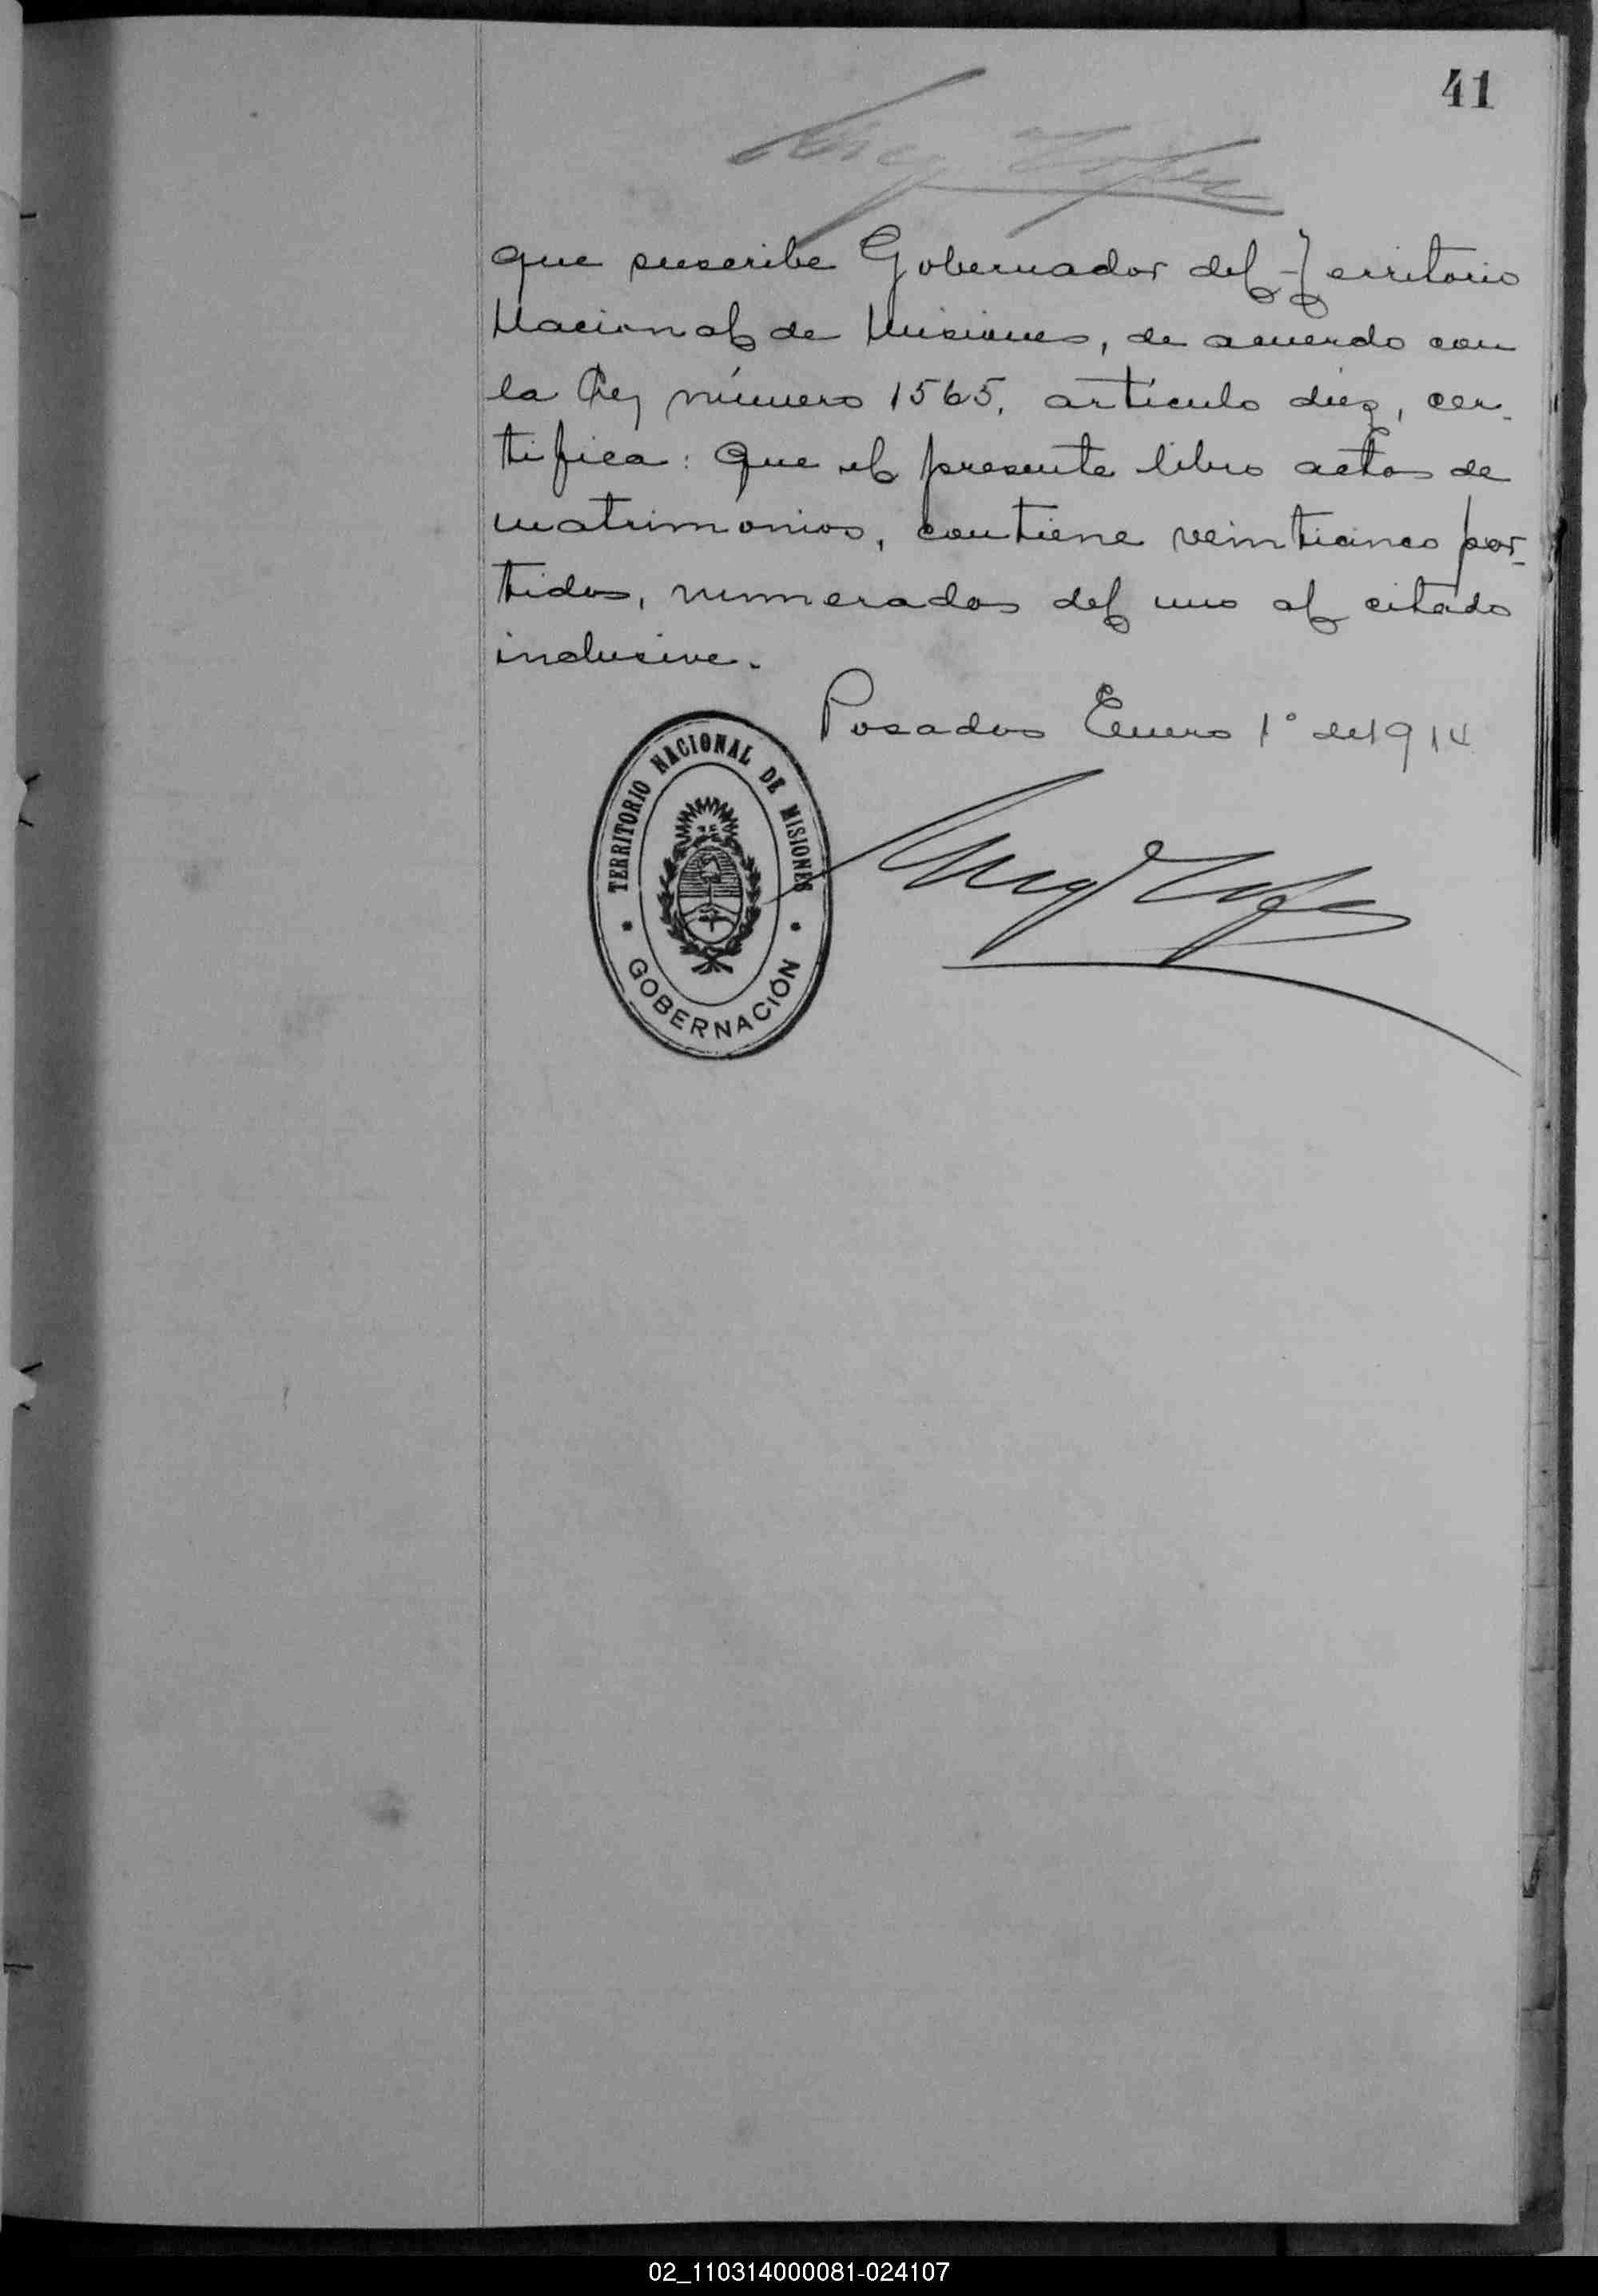 41
que suscribe Gobernador del Territorio
Nacional de Misiones, de acuerdo con
la Ley número 1565, artículo diez, cer-
tifica: Que el presente libro actas de
matrimonios, contiene veinticinco par-
tidas, numeradas del uno al citado
inclusive.
Posadas Enero 1° de 1914
TERRITORIO NACIONAL DE MISIONES
GOBERNACIÓN
02_110314000081-024107